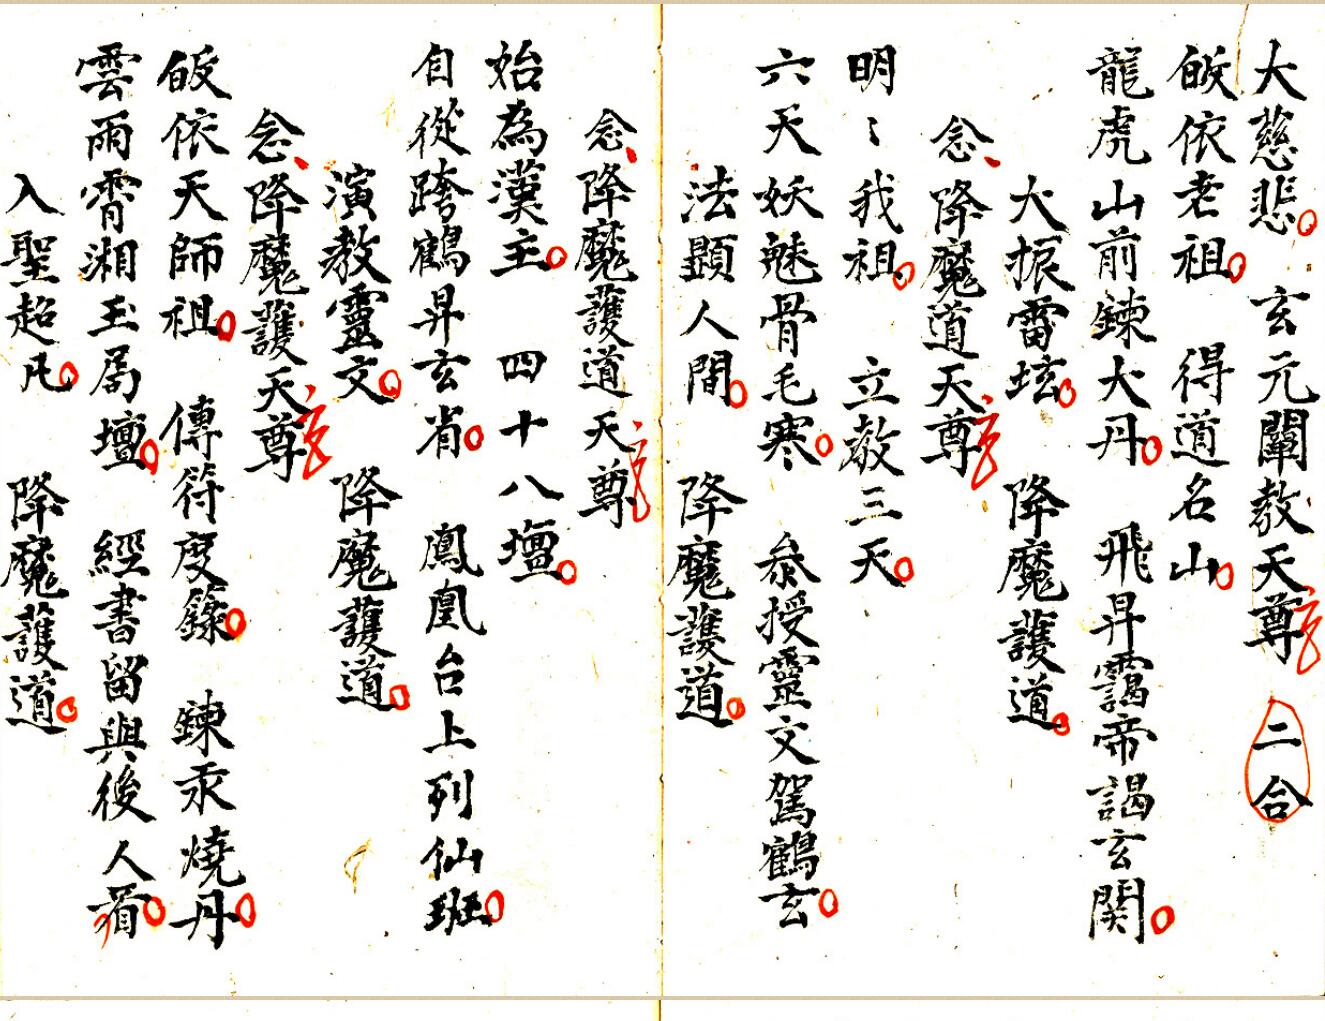 大慈悲 玄元闡教天尊 二合
皈依老祖 得道名山
龍虎山前錬大丹 飛昇靄帝謁玄関
大振雷坛 降魔護道
念降魔道天尊
明〻我祖 立教三天
六天妖魅骨毛寒 叅授靈文駕鶴玄
法顕人間 降魔護道
念降魔護道天尊
始為漢主 四十八壇
自從跨鶴昇玄省 鳳凰台上列仙班
演教靈文 降魔護道
念降魔護天尊
皈依天師祖 傳符度籙 錬汞燒丹
雲雨霄湘玉局壇 經書留與後人看
入聖超凡 降魔護道